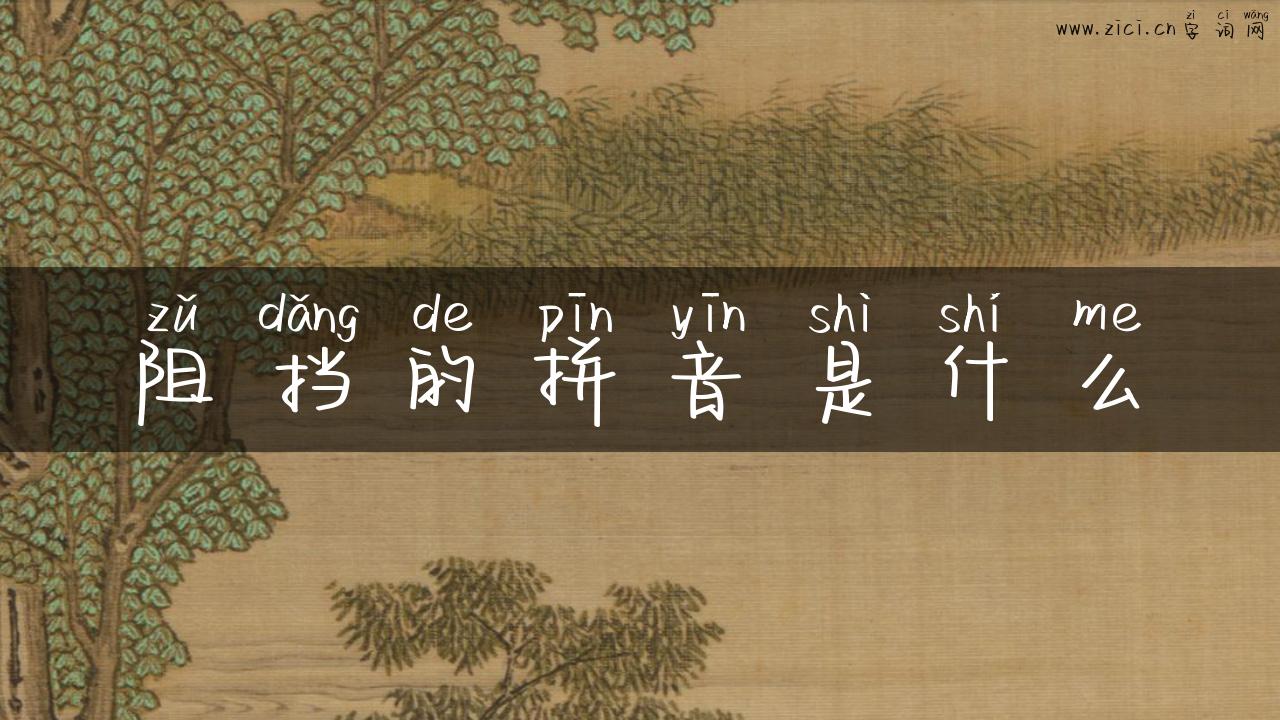 zì cí wǎng
www.zici.cn 字词网
zǔ dǎng de pīn yīn shì shí me
阻挡的拼音是什么